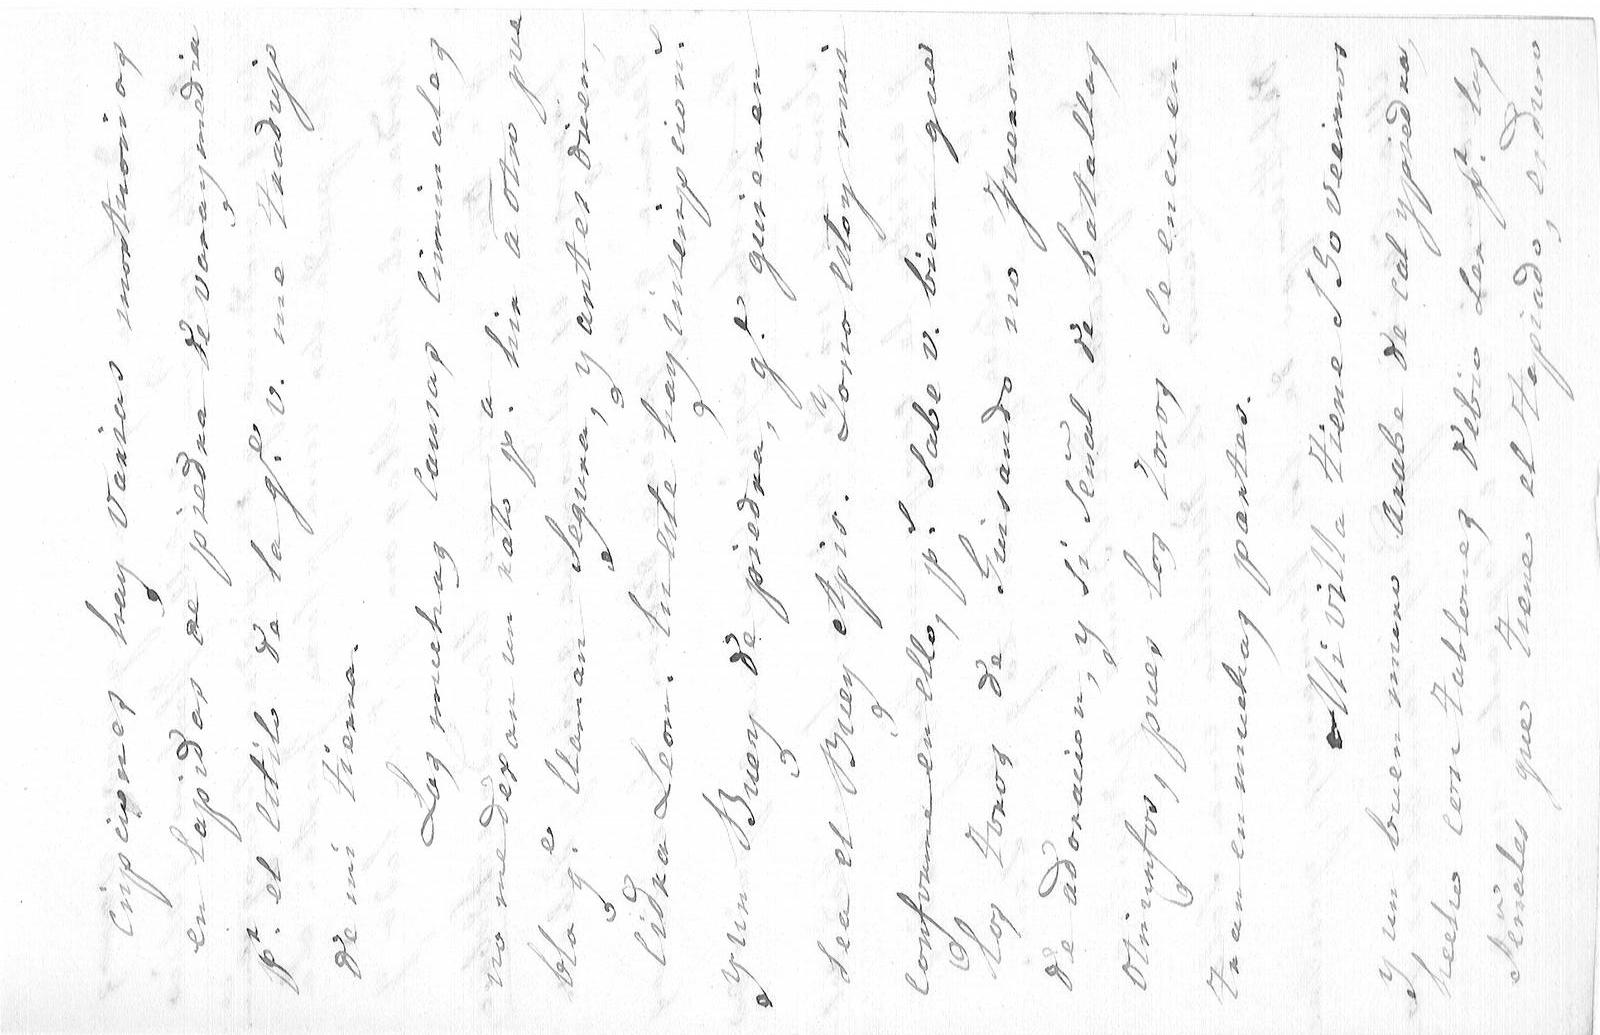 cripciones hay varias mortuorias
en lapidas de piedra de varay media
pr. el estilo de la qe. v. me tradujo
de mi tierra.
Las muchas causas criminales
no me dexan un rato pa. hir a otro pue
blo qe. llaman Segura, y antes dicen,
cidra Leon. En este hay inscripcions.
y un Buey de piedra, qe. quieren
sea el Buey Apis. Yo no estoy mui
conforme en ello, ps. sabe v. bien que
los toros de Guisando no fueron
de adoracion, y si señal de batallas
o triunfos, pues los toros se encuen
tran en muchas partes.
Mi villa tiene 180 vecinos
y un buen muro Arabe de cal y piedra,
hecho con tablones debio ser pr. las
señales que tiene el tapiado,